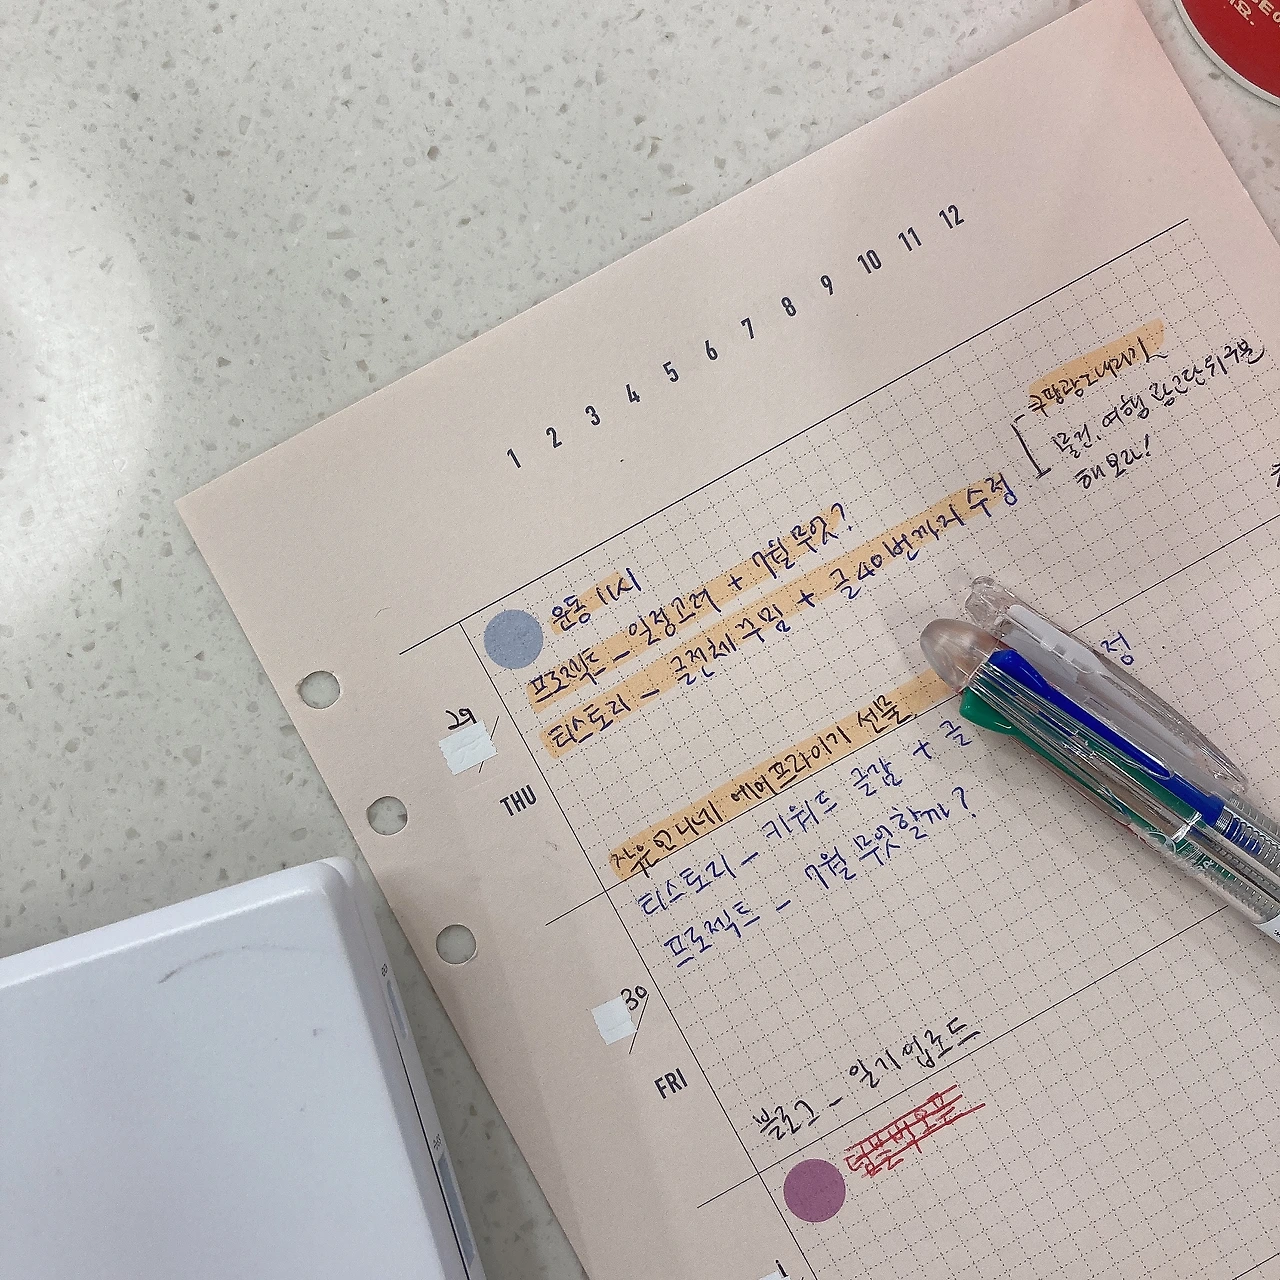 1 2 3 4 5 6 7 8 9 10 11 12
29
THU
운동 11시
프로젝트 - 일정고려 + 7월 무엇?
티스토리 - 글전체 꾸밈 + 글 40번까지 수정
쿠팡광고내리기
물건, 여행 광고단위구분
해보라!
30
FRI
언니네 에어프라이기 선물
티스토리 - 키워드 글감 + 글 정
프로젝트 - 7월 무엇할까?
블로그 - 일기 업로드
1